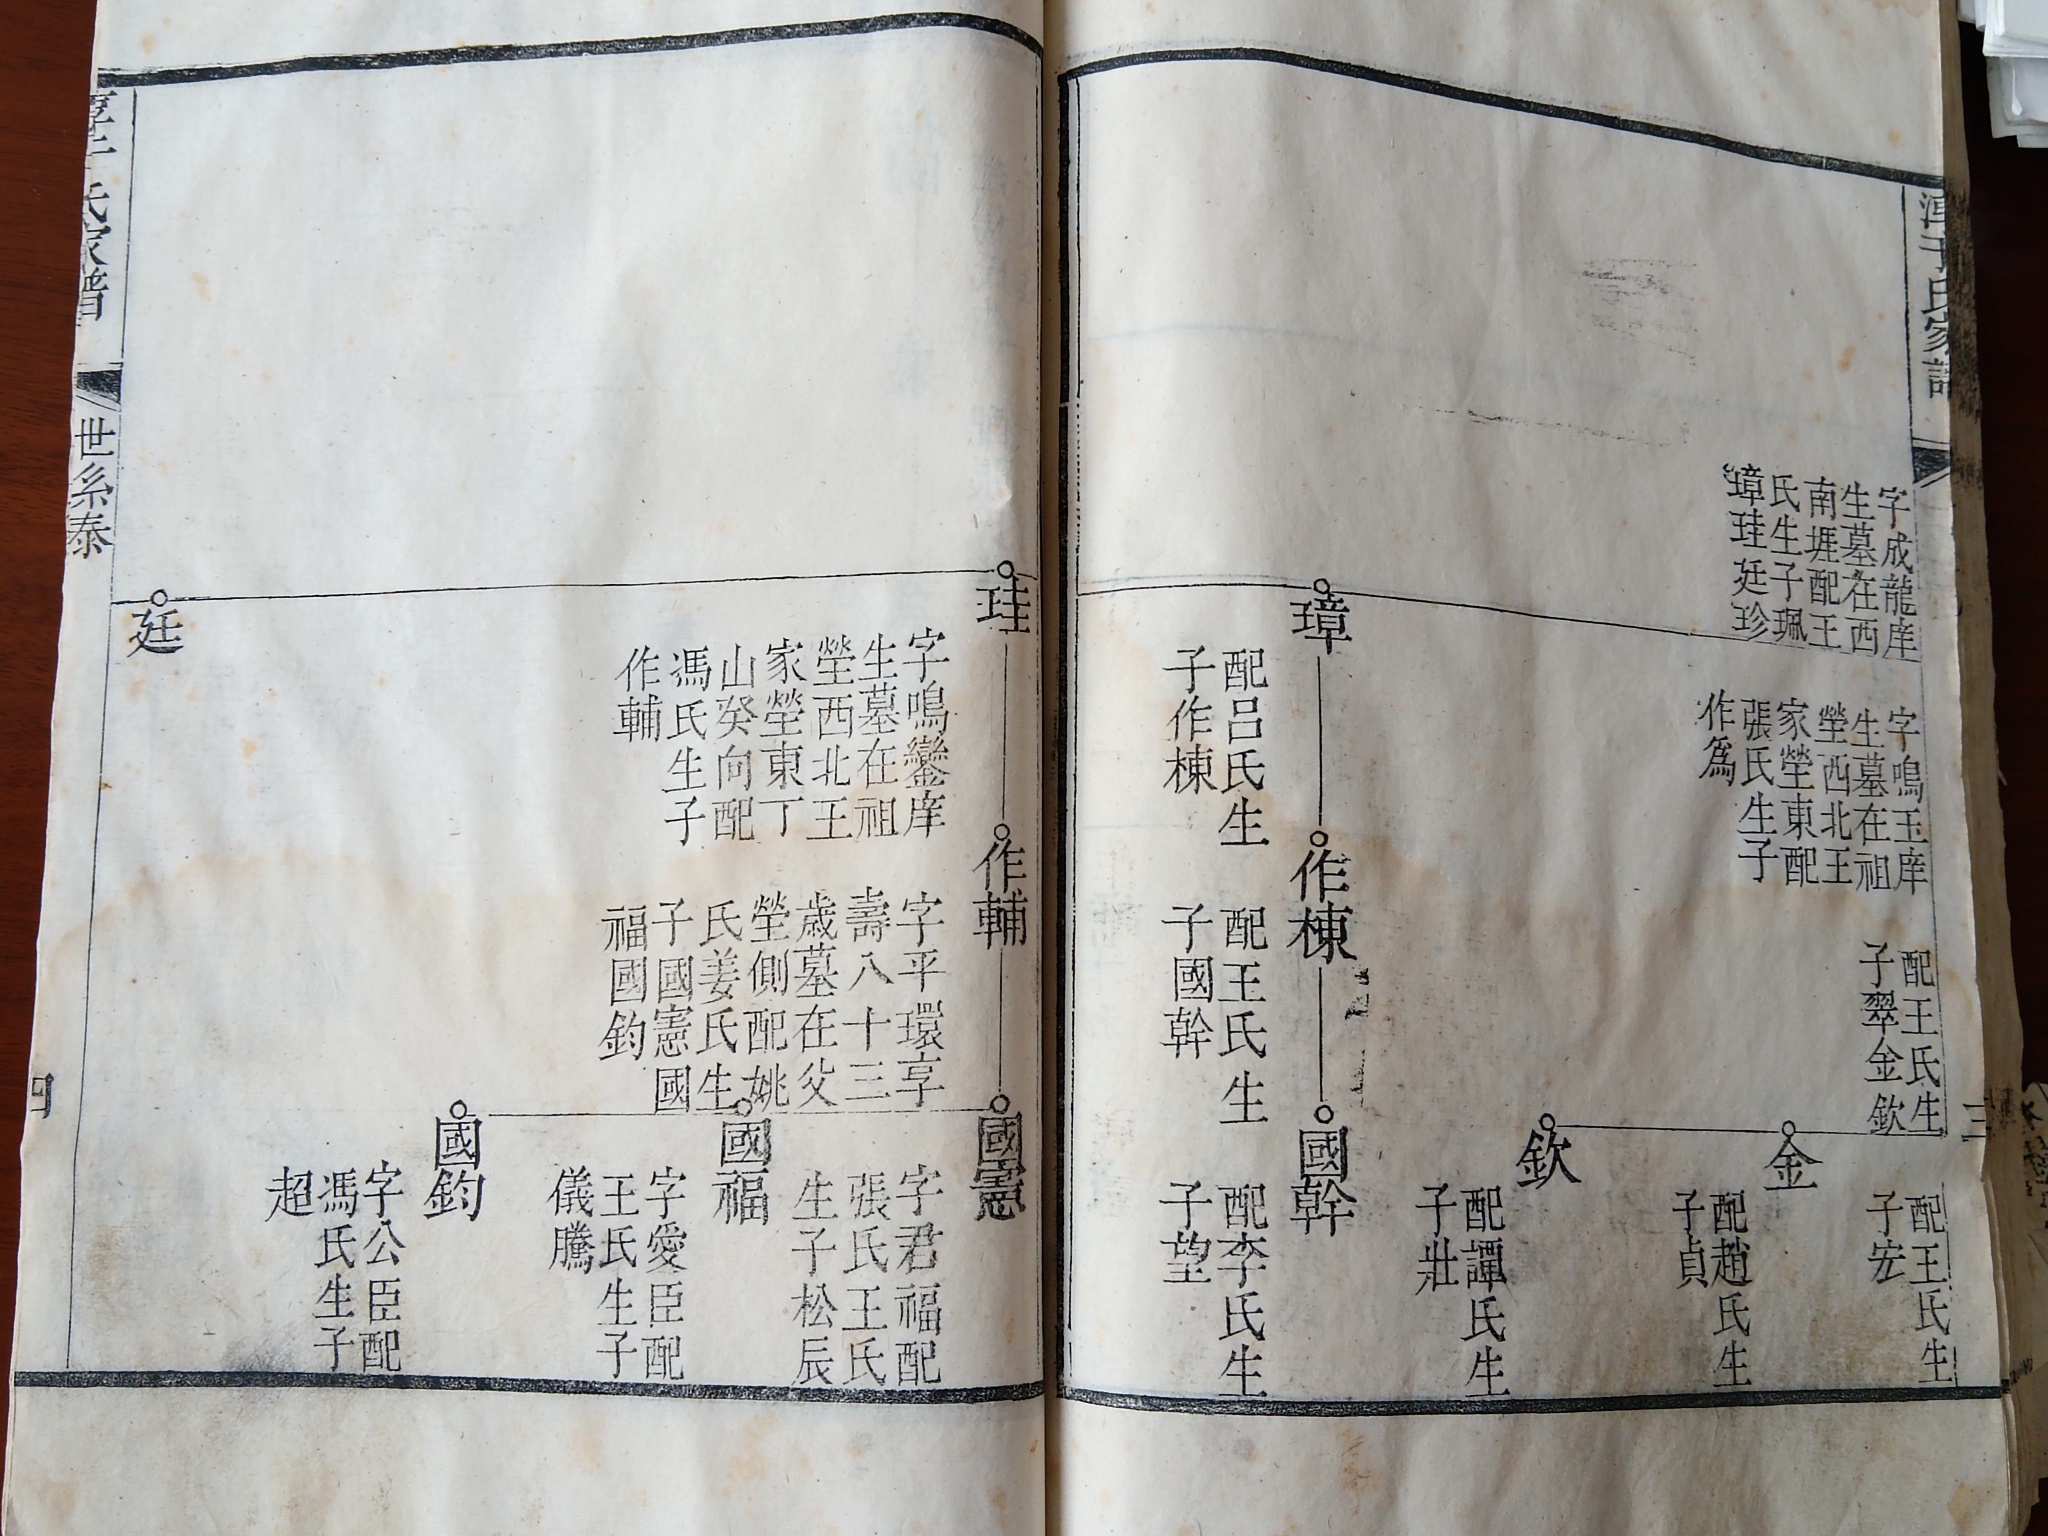 淳于氏家譜
三
字成龍庠
生墓在西
南堐配王
氏生子珮
璋珪廷珍
字鳴玉庠
生墓在祖
塋西北王
家塋東配
張氏生子
作為
配王氏生
子翠金欽
配王氏生
子宏
金
配趙氏生
子貞
欽
配譚氏生
子壯
璋
配呂氏生
子作棟
作棟
配王氏生
子國幹
國幹
配李氏生
子望
珪
字鳴鑾庠
生墓在祖
塋西北王
家塋東丁
山癸向配
馮氏生子
作輔
作輔
字平環享
壽八十三
歲墓在父
塋側配姚
氏姜氏生
子國憲國
福國鈞
國憲
字君福配
張氏王氏
生子松辰
國福
字愛臣配
王氏生子
儀騰
國鈞
字公臣配
馮氏生子
超
廷
淳于氏家譜
世系泰
四